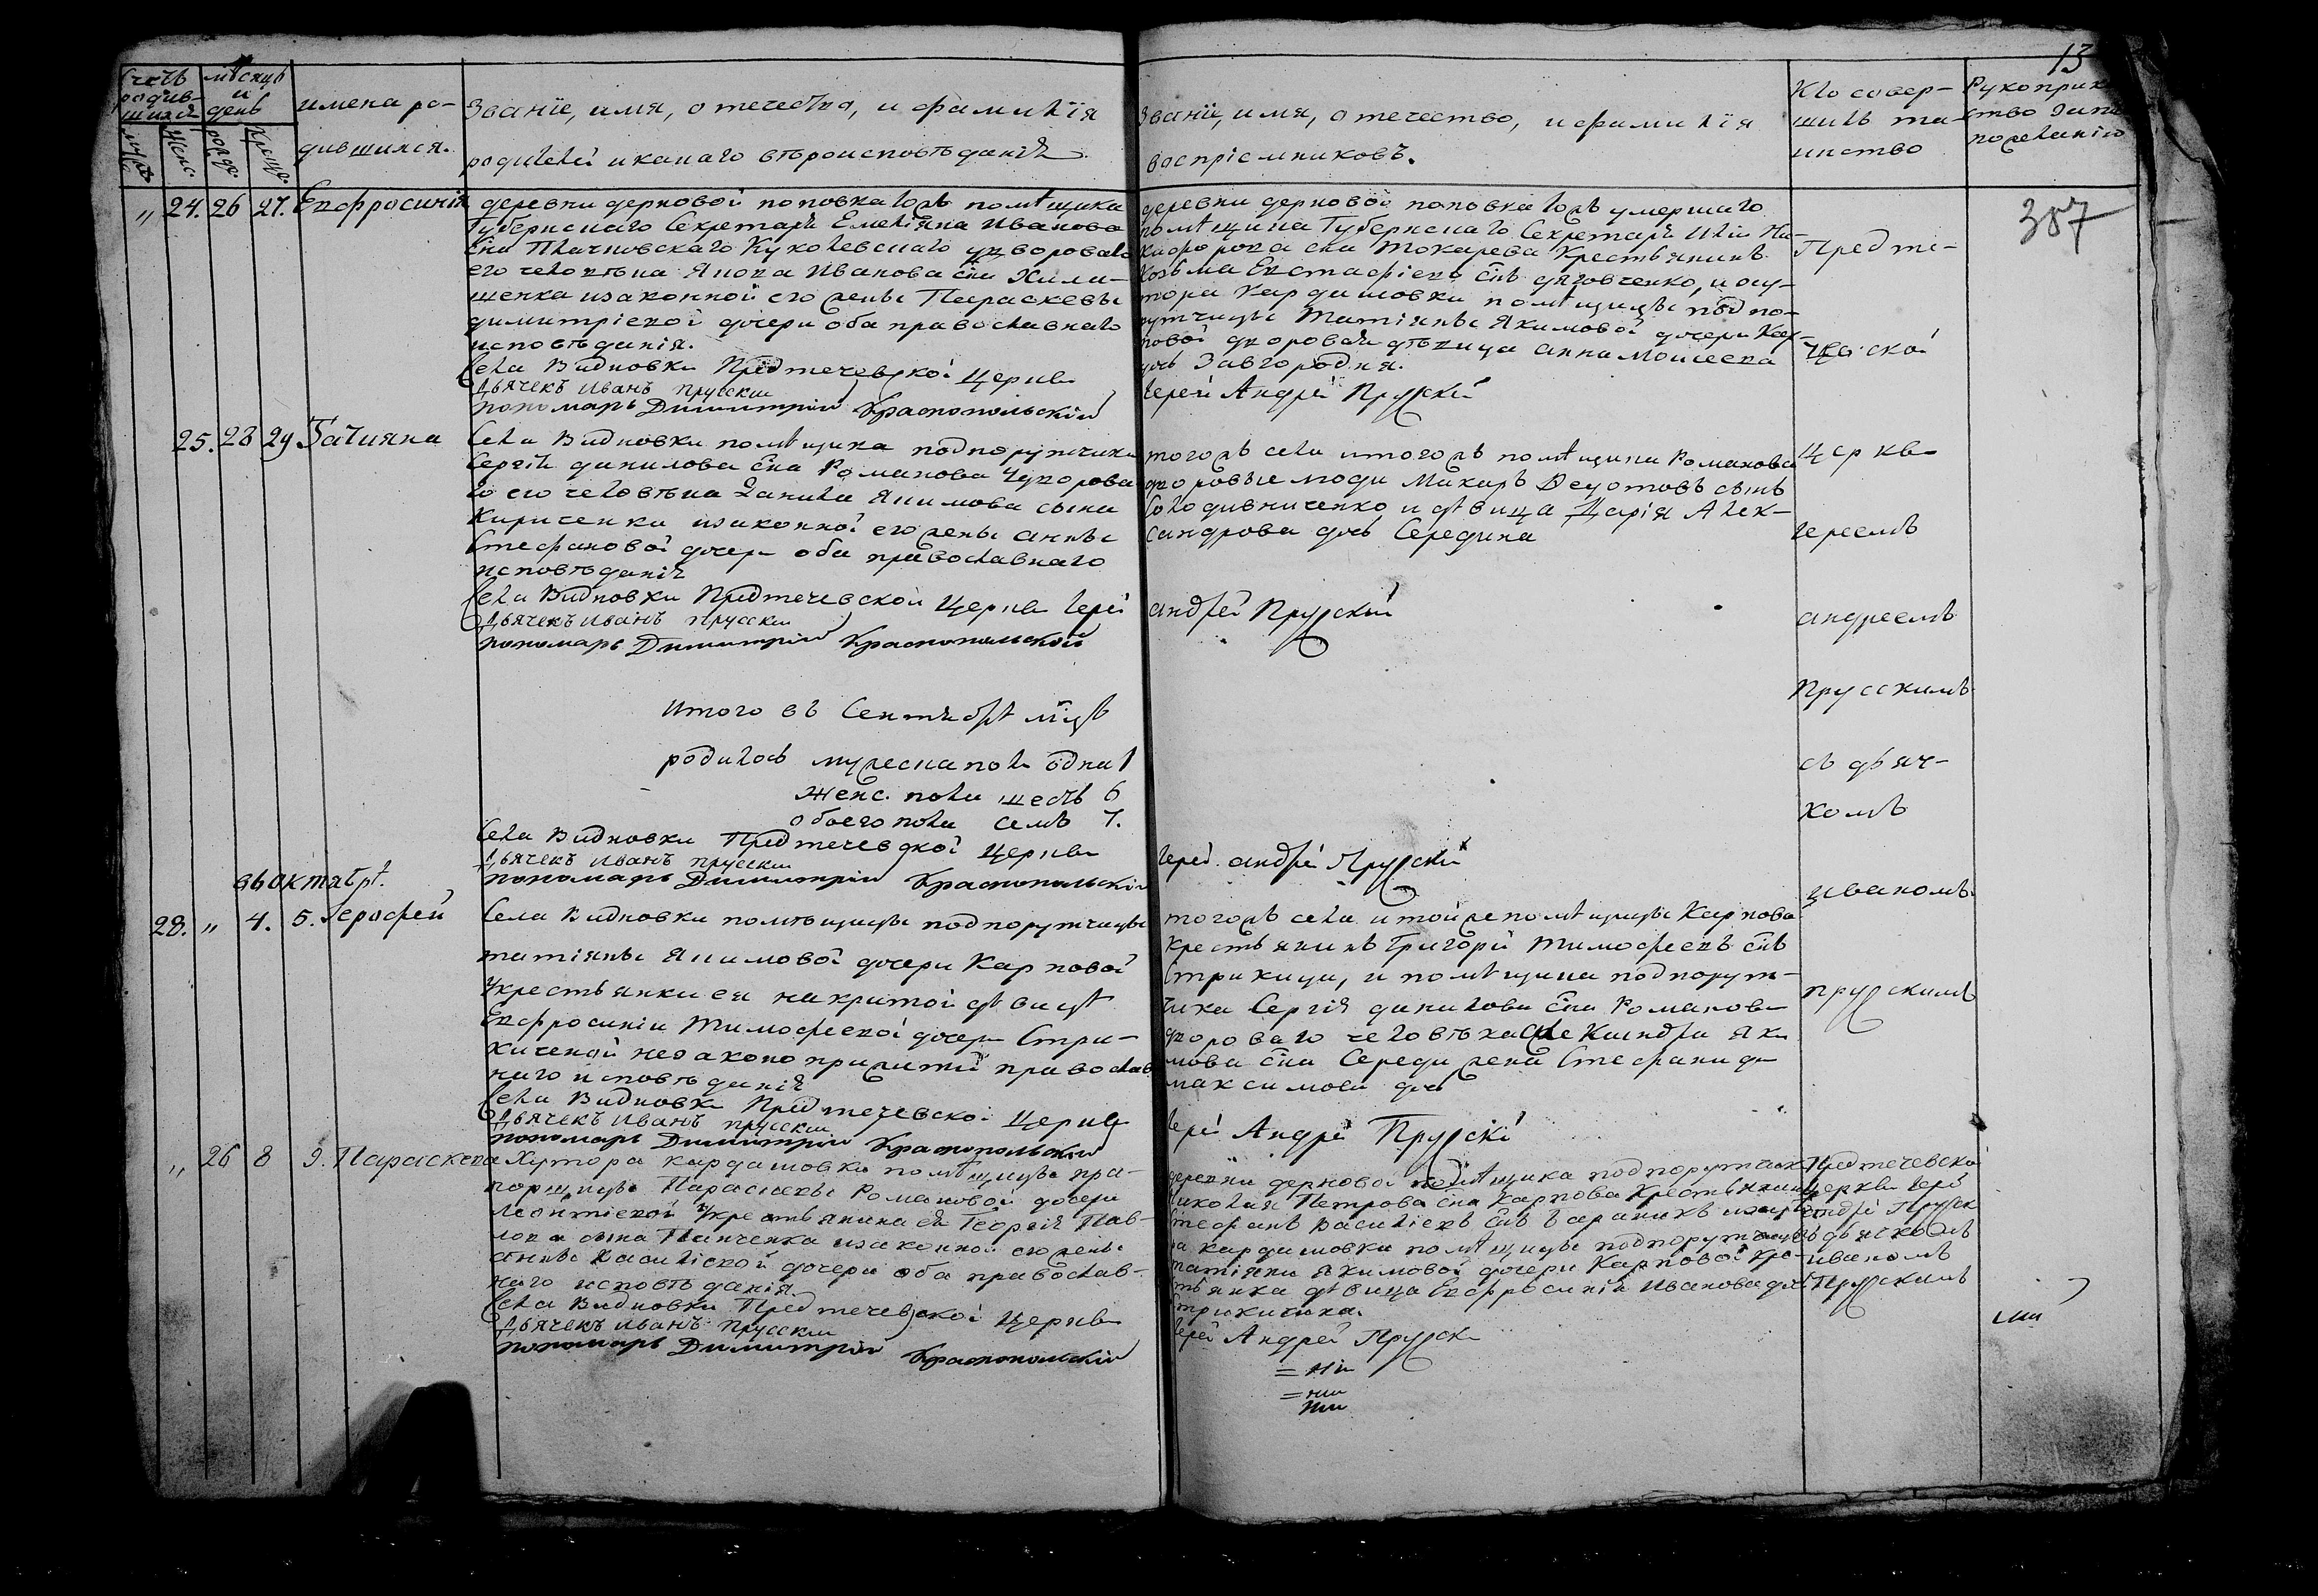 13
Счетъ родив-шихся
мѣсяцъ и день
имена ро-
дившихся.
званїе, имя, отечество, и фамилїя
родителей и какаго вѣроисповѣданїя.
званїе, имя, отечество, и фамилїя
воспрїемниковъ.
Кто совер-
шилъ та-
инство
Рукоприк
ство
387
" 24. 26 27. Евфросинїя
деревни дерновой поповка тожъ помѣщика
Губернскаго Секретаря Емелїяна Иванова
сна Плачковскаго Куколевскаго удвороваго
его человѣка Якова Иванова сна
щенка и законной его жены Параскевы
димитрїевой дочери оба православнаго
исповѣданїя.
Села Видновки Предтечевской Церкви
Дьячекъ Иванъ Прусскїй
пономарь Димитрїй Краснопольскїй
деревни дерновой поповка тожъ умершаго
помѣщика Губернскаго Секретаря Илїи Ни-
кифорова сна Токарева Крестьянинъ
Козьма Евстафїевъ снъ дяговченко, и ху-
тора Кардашовки помѣщицы подпо-
рутчицы Татїяны Якимовой дочери Кар-
повой дворовая дѣвица анна Моисеева
дочь Завгородня.
Іерей Андрей Прусскїй
25. 28 29 Татїяна
Села Видновки помѣщика подпорутчика
Сергїя данилова сна Романова у дворова-
го его человѣка Данила Якимова сына
Кириченка и законной его жены анны
Стефановой дочери оба православнаго
исповѣданїя
Села Видновки Предтечевской Церкви Іерей
Дьячекъ Иванъ Прусскїй
пономарь Димитрїй Краснопольской
тогожъ села и тогожъ помѣщика Романова
дворовые люди Макаръ Федотовъ сынъ
Солодивниченко и дѣвица Дарїя Алек-
сандрова дочь Середина
андрей Прусскїй
Итого въ Сентябрѣ мцѣ
родилось мужеска пола одна 1
женс. пола шесть 6
обоего пола семь 7.
Села Видновки Предтечевской Церкви
Дьячекъ Иванъ Прусскїй
пономарь Димитрїй Краснопольскїй
Іерей андрей Прусскїй
въ октябрѣ.
28. " 4. 5. Іерофей
Села Видновки помѣщицы подпорутчицы
татїяны Якимовой дочери Карповой
У крестьянки ея накритой дѣвицы
Евфросинїи Тимофеевой дочери Стри-
жиченой незаконо прижитый православ-
наго исповѣданїя
Села Видновки Предтечевской Церкви
Дьячекъ Иванъ Прусскїй
пономарь Димитрїй Краснопольскїй
тогожъ села и той же помѣщицы Карповой
Крестьянинъ Григорїй Тимофеевъ снъ
Стрижици, и помѣщика подпорут-
чика Сергїя данилова сна Романова
двороваго человѣка Александра Яки
мова сна Середи жена Стефанида
максимова дочь
Іерей Андрей Прусскїй
" 26 8 9. Параскева
Хутора кардашовки помѣщицы пра-
порщицы Параскевы Романовой дочери
Леонтїевой У крестьянина ея Георгїя Пав-
лова сына Ткаченка и законной его жены
анны Василїевой дочери оба православ-
наго исповѣданїя.
Села Видновки Предтечевской Церкви
Дьячекъ Иванъ Прусскїй
пономарь Димитрїй Краснопольскїй
деревни дерновой помѣщика подпорутчика
Николая Петрова сна Карпова Крестьянинъ
Стефанъ Василїевъ снъ и хуто
ра кардашовки помѣщицы подпорутчицы
татїяны Якимовой дочери Карповой кре-
стьянка дѣвица Евфросинїя Иванова дочь
Стрижичина.
Іерей Андрей Прусскїй
Предте-
ческой
Церкви
Іереемъ
андреемъ
Прусскимъ
съ дьяч-
комъ
иваномъ
прусскимъ
Предтечевской
Церкви Іерей
андрей Прусск
съ дьячкомъ
иваномъ
Прусскимъ